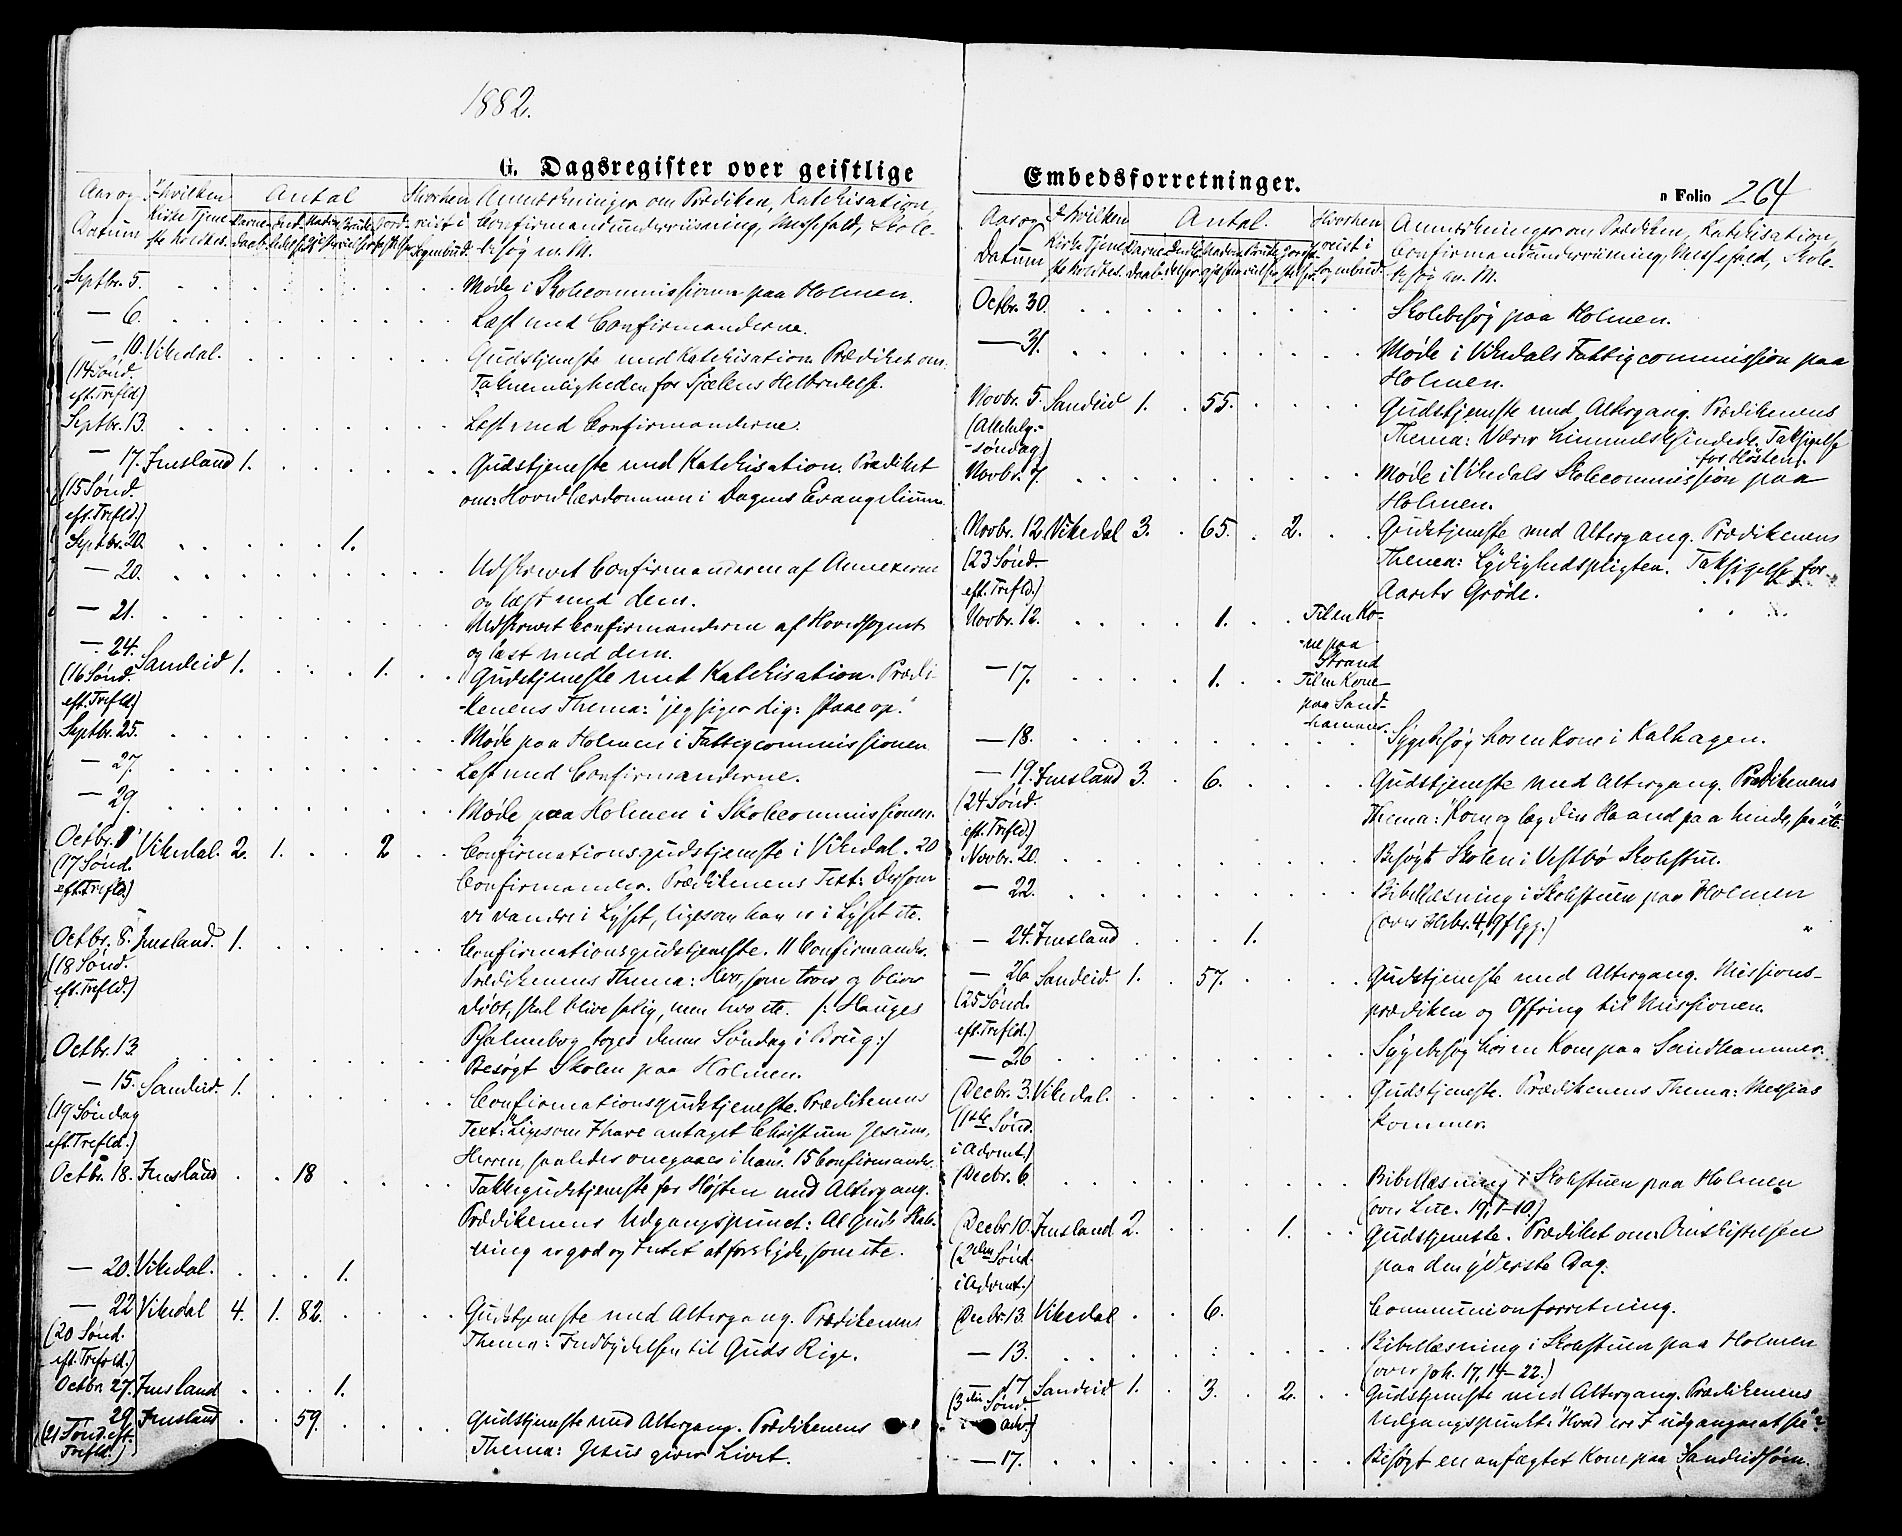 1882.
G. Dagsregister over geistlige
Aar og Datum
I hvilken Kirke Tjeneste holdtes.
Antal
Barnedaab
Hvorhen reist i Sognebud.
Anmærkninger om Prædiken, Katekisation,
Confirmandundervisning, Messefald, Skole-
besøg m. M.
Septbr. 5. Møde i Skolecommissionen paa Holmen.
— 6. Læst med Confirmanderne.
— 10. Vikedal. Gudstjeneste med Katekisation. Prædiket om:
(14 Sønd. eft. Trefld.) Taknemligheden for Sjælens Helbredelse.
Septbr. 13. Læst med Confirmanderne.
— 17. Imsland 1. Gudstjeneste med Katekisation. Prædiket
(15 Sønd. eft. Trefld.) om: Hovedlærdommen i Dagens Evangelium.
Septbr. 20. 1.
— 20. Udskrevet Confirmanderne af Annexerne
og læst med dem.
— 21. Udskrevet Confirmanderne af Hovedsognet
og læst med dem.
— 24. Sandeid 1. 1. Gudstjeneste med Katekisation. Prædi-
(16 Sønd. eft. Trefld.) kenens Thema: "jeg siger dig: staae op."
Septbr. 25. Møde paa Holmen i Fattigcommissionen
— 27. Læst med Confirmanderne.
— 29. Møde paa Holmen i Skolecommissionen.
Octbr. 1 Vikedal. 2. 1. 2 Confirmationsgudstjeneste i Vikedal. 20
(17 Sønd. eft. Trefld.) Confirmander. Prædikenens Text: Dersom
vi vandre i Lyset, ligesom han er i Lyset etc.
Octbr. 8. Imsland. 1. Confirmationsgudstjeneste. 11 Confirmander.
(18 Sønd. eft. Trefld.) Prædikenens Thema: Hvo, som troer og bliver
døbt, skal blive salig, men hvo etc. /: Hauges
Psalmebog toges denne Søndag i Brug :/
Octbr. 13. Besøgt Skolen paa Holmen.
— 15. Sandeid. 1. Confirmationsgudstjeneste. Prædikenens
(19 Søndag eft. Trefld.) Text: "Ligesom I have antaget Christum Jesum,
Herren, saaledes omgaaes i ham". 15 Confirmander.
Octbr. 18. Imsland 18 Takkegudstjeneste for Høsten med Altergang.
Prædikenens Udgangspunct: Al Guds Skab-
ning er god og Intet at forskyde, som etc.
— 20. Vikedal. 1.
— 22 Vikedal 4. 1. 82. Gudstjeneste med Altergang. Prædikenens
(20 Sønd. eft. Trefold.) Thema: Indbydelsen til Guds Rige.
Octbr. 27. Imsland 1.
— 29. Imsland 59. Gudstjeneste med Altergang. Prædikenens
(21 Sønd. eft. Trefld.) Thema: Jesus giver Livet.
Embedsforretninger.
n Folio 264
Aar og Datum
I hvilken Kirke Tjeneste holdtes.
Antal.
Hvorhen reist i Sognebud.
Anmærkninger om Prædiken, Katekisation,
Confirmandundervisning, Messefald, Skole-
besøg m. M.
Octbr. 30. Skolebesøg paa Holmen.
— 31. Møde i Vikedals Fattigcommission paa
Holmen.
Novbr. 5. Sandeid 1. 55. Gudstjeneste med Altergang. Prædikenens
(Allehelg.-søndag) Thema: Værer himmelsksindede. Taksigelse
for Høsten.
Novbr. 7. Møde i Vikedals Skolecommission paa
Holmen.
Novbr. 12 Vikedal 3. 65. 2. Gudstjeneste med Altergang. Prædikenens
(23 Sønd. eft. Trefld.) Thema: Lydighedspligten. Taksigelse for
Aarets Grøde.
Novbr. 12. 1. Til en Ko-
ne paa
Strand
— 17. 1. Til en Kone
paa Sand-
hammer.
— 18. Sygebesøg hos en Kone i Kalhagen.
— 19. Imsland 3. 6. Gudstjeneste med Altergang. Prædikenens
(24 Sønd. eft. Trefld.) Thema: "Kom og læg din Haand paa hende, saa etc."
Novbr. 20. Besøgt Skolen i Vestbø Skolestue.
— 22. Bibellæsning i Skolestuen paa Holmen
(over Hebr. 4, 9 flgg.)
— 24. Imsland 1.
— 26 Sandeid. 1. 57. Gudstjeneste med Altergang. Missions-
(25 Sønd. eft. Trefld.) prædiken og Offring til Missionen.
— 26 Sygebesøg hos en Kone paa Sandhammer.
Decbr. 3. Vikedal. Gudstjeneste. Prædikenens Thema: Messias
(1ste Sønd. i Advent.) kommer.
Decbr. 6. Bibellæsning i Skolestuen paa Holmen
(over Luc. 17, 1-10.)
Decbr 10. Imsland 2. 1. Gudstjeneste. Prædiket om: Omskiftelsen
(2den Sønd. i Advent.) paa den yderste Dag.
Decbr. 13. Vikedal 6. Communionforretning.
— 13. Bibellæsning i Skolestuen paa Holmen
(over Joh. 17, 14-22.)
— 17. Sandeid 1. 3. 2. Gudstjeneste med Altergang. Prædikenens
(3die Sønd. i Adv.) Udgangspunkt: "Hvad ere I udgangne at see"?
— 17. Besøgt en anfægtet Kone paa Sandeidsøen.